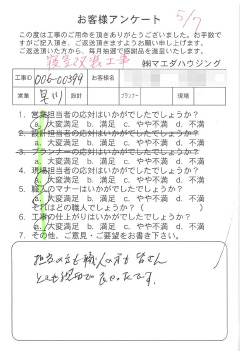 お客様アンケート
5/7
この度は工事のご用命を頂きありがとうございました。お手数で
すがご記入頂き、ご返送頂きますようお願い申し上げます。
ご返送頂いた方から、毎月抽選で感謝品を進呈いたします。
寝室改造工事
㈱マエダハウジング
工事ID 006-00399 お客様名
営業 早川 設計 プランナー 現場
1. 営業担当者の応対はいかがでしたでしょうか?
a. 大変満足 b. 満足 c. やや不満 d. 不満
2. 設計担当者の応対はいかがでしたでしょうか?
a. 大変満足 b. 満足 c. やや不満 d. 不満
3. プランナーの応対はいかがでしたでしょうか?
a. 大変満足 b. 満足 c. やや不満 d. 不満
4. 現場担当者の応対はいかがでしたでしょうか?
a. 大変満足 b. 満足 c. やや不満 d. 不満
5. 職人のマナーはいかがでしたでしょうか?
a. 大変満足 b. 満足 c. やや不満 d. 不満
それはどの職人でしょうか? ( )
6. 工事の仕上がりはいかがでしたでしょうか?
a. 大変満足 b. 満足 c. やや不満 d. 不満
7. その他、ご意見・ご要望をお書き下さい。
担当の方も職人の方も皆さん
とても親切で良かったです。